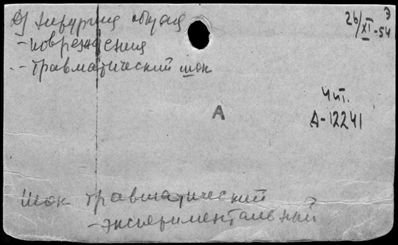 2) Хирургия общая
- повреждения
- травматический шок
26/XI-54
Э
Чит.
А-12241
А
Шок травматический
- экспериментальный